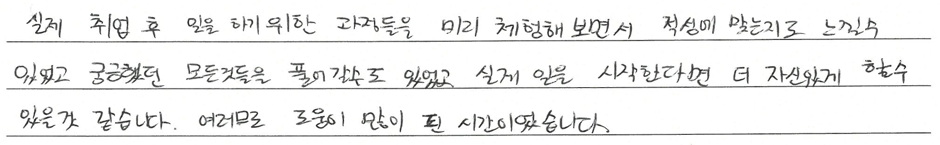 실제 취업 후 일을 하기 위한 과정들을 미리 체험해 보면서 적성에 맞는지도 느낄수
있었고 궁금했던 모든것들을 풀어갈수도 있었고 실제 일을 시작한다면 더 자신있게 할수
있을것 같습니다. 여러모로 도움이 많이 된 시간이었습니다.